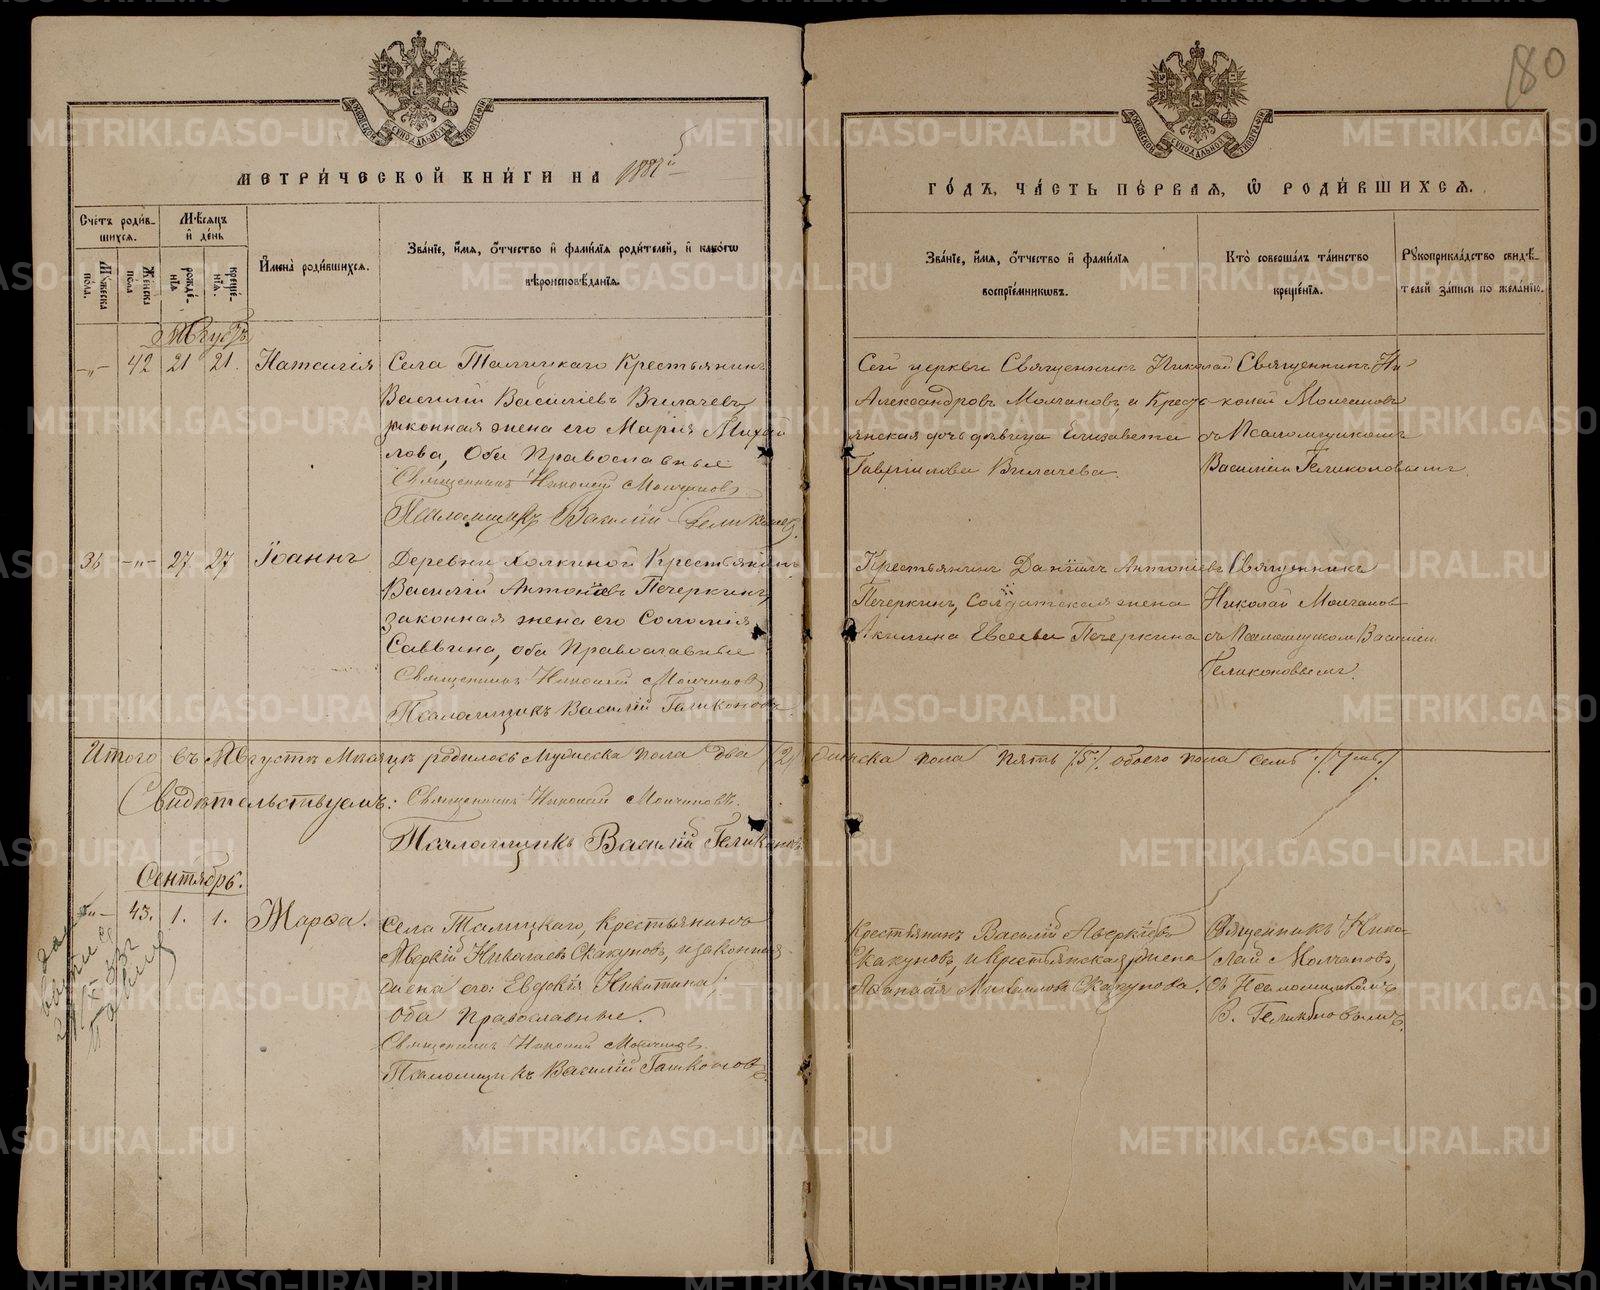 180
МЕТРИЧЕСКОЙ КНИГИ НА 1885й
ГОДЪ, ЧАСТЬ ПЕРВАЯ, Ѡ РОДИВШИХСЯ.
Счетъ родив-
шихся.
Мѣсяцъ
и день
Мужеска пола.
Женска пола
рожде-
нія
креще-
нія.
Имена родившихся.
Званіе, имя, отчество и фамилія родителей, и какого
вѣроисповѣданія.
Званіе, имя, отчество и фамилія
воспріемниковъ.
Кто совершалъ таинство
крещенія.
Рукоприкладство свидѣ-
телей записи по желанію.
Августъ
-„- 42 21 21. Наталія
Села Талицкаго Крестьянинъ
Василій Василіевъ Вилачевъ,
законная жена его Марія Михаи
лова, Оба Православные
Священникъ Николай Молчановъ
Псаломщикъ Василій Геликоновъ.
Сей церкви Священникъ Николай
Александровъ Молчановъ, и Кресть-
янская дочь дѣвица Елизавета
Гавріилова Вилачева.
Священникъ Ни-
колай Молчановъ
съ Псаломщикомъ
Василіем Геликоновымъ.
36 -„- 27 27 Іоаннъ
Деревни Холкиной Крестьянинъ
Василій Антоніевъ Печеркинъ,
законная жена его Соломія
Саввина, оба Православные
Священникъ Николай Молчановъ
Псаломщикъ Василій Геликоновъ.
Крестьянинъ Даніилъ Антоніевъ
Печеркинъ, Солдатская жена
Акилина Евсеева Печеркина
Священникъ
Николай Молчанов
съ Псаломщиком Василіем
Геликоновымъ.
Итого въ Августѣ Мѣсяцѣ родилось Мужеска пола два /2/ Женска пола пять /5/ обоего пола семь /7мь/
Свидѣтельствуемъ: Священникъ Николай Молчановъ.
Псаломщикъ Василій Геликоновъ
Сентябрь.
-„- 43. 1. 1. Марѳа.
Села Талицкаго, крестьянинъ
Аверкій Николаевъ Скакуновъ, и законная
жена его: Евдокія Никитина,
оба православные.
Священникъ Николай Молчановъ.
Псаломщикъ Василій Геликоновъ
Крестьянинъ Василій Аверкіевъ
Скакуновъ, и крестьянская жена
Аѳанасія Михаилова Скакунова.
Священникъ Нико-
лай Молчановъ,
съ Псаломщикомъ
В. Геликоновымъ.
METRIKI.GASO-URAL.RU